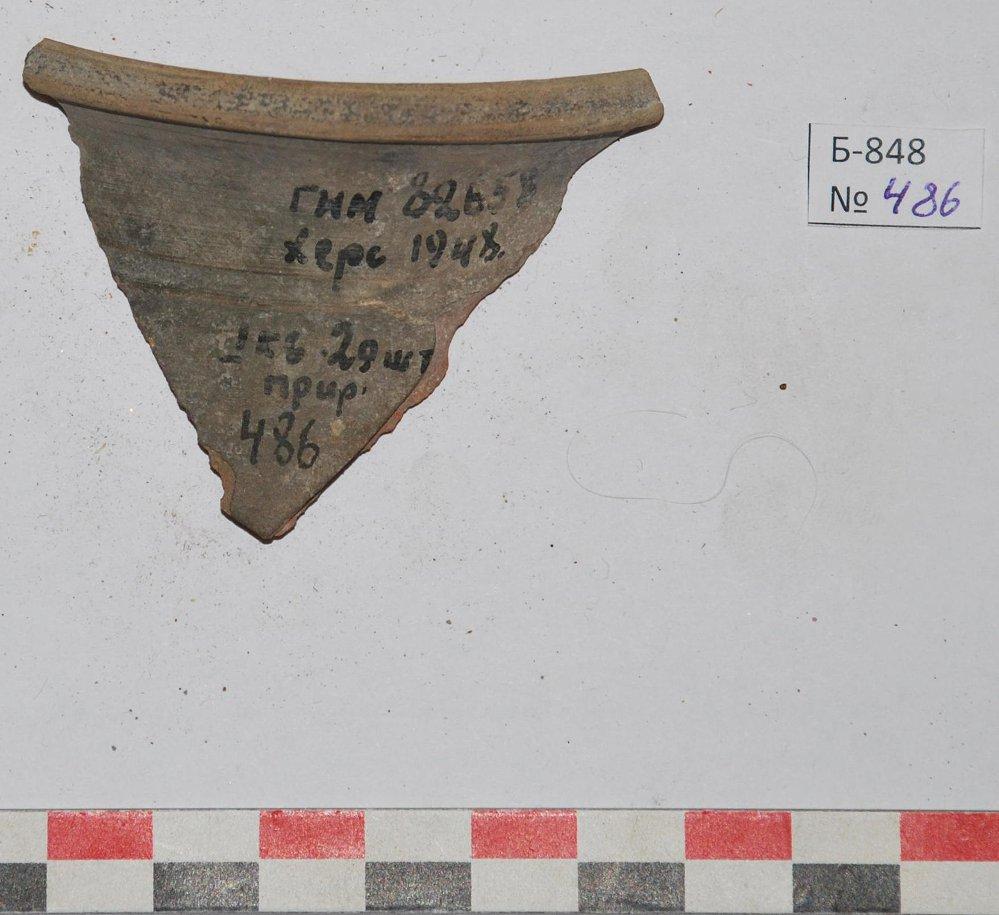 ГИМ 82658
Херс 1948.
29 шт
прир.
486
Б-848
№ 486